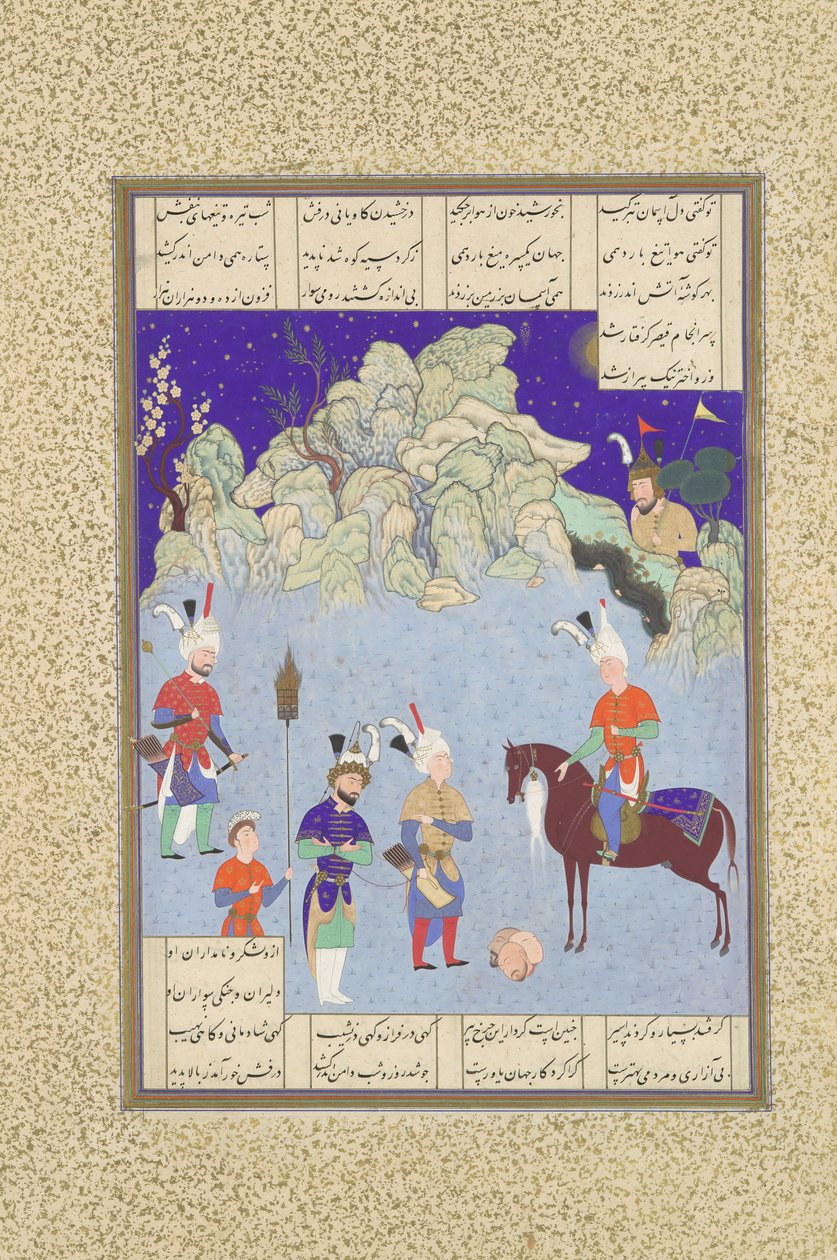 تو گفتی دل آسمان بترکید بخورشید خون از هوا بر چکید درخشیدن کاویانی درفش شب تیره و تیغهای بنفش
تو گفتی هوا تیغ بارد همی جهان یکسره میغ بارد همی ز گرد سپه کوه شد ناپدید ستاره همی دامن اندر کشید
بهر گوشهٔ آتش اندر زدند همی آسمان بر زمین بر زدند بی اندازه کشتند رومی سوار فزون از ده و دو هزاران
سرانجام قیصر گرفتار شد
وزو اختر نیک بیزار شد
ازو لشکر و نامداران او
دلیران و جنگی سواران او
گرفتند بسیار و کردند اسیر چنین است کردار این چرخ پیر گهی در فراز و گهی در نشیب گهی شادمانی و گاهی نهیب
بی آزاری و مردمی بهترست کرا کردگار جهان یاورست چو شد روز و شب دامن اندر کشید درفش خور آمد ز بالا پدید